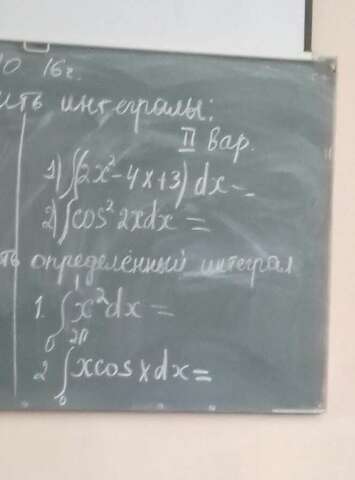 16г.
интегралы:
II вар.
1) ∫(6x²-4x+3)dx=
2) ∫cos²2xdx=
определённый интеграл
1. ∫₀¹x²dx=
2 ∫₀²ᴨxcosxdx=